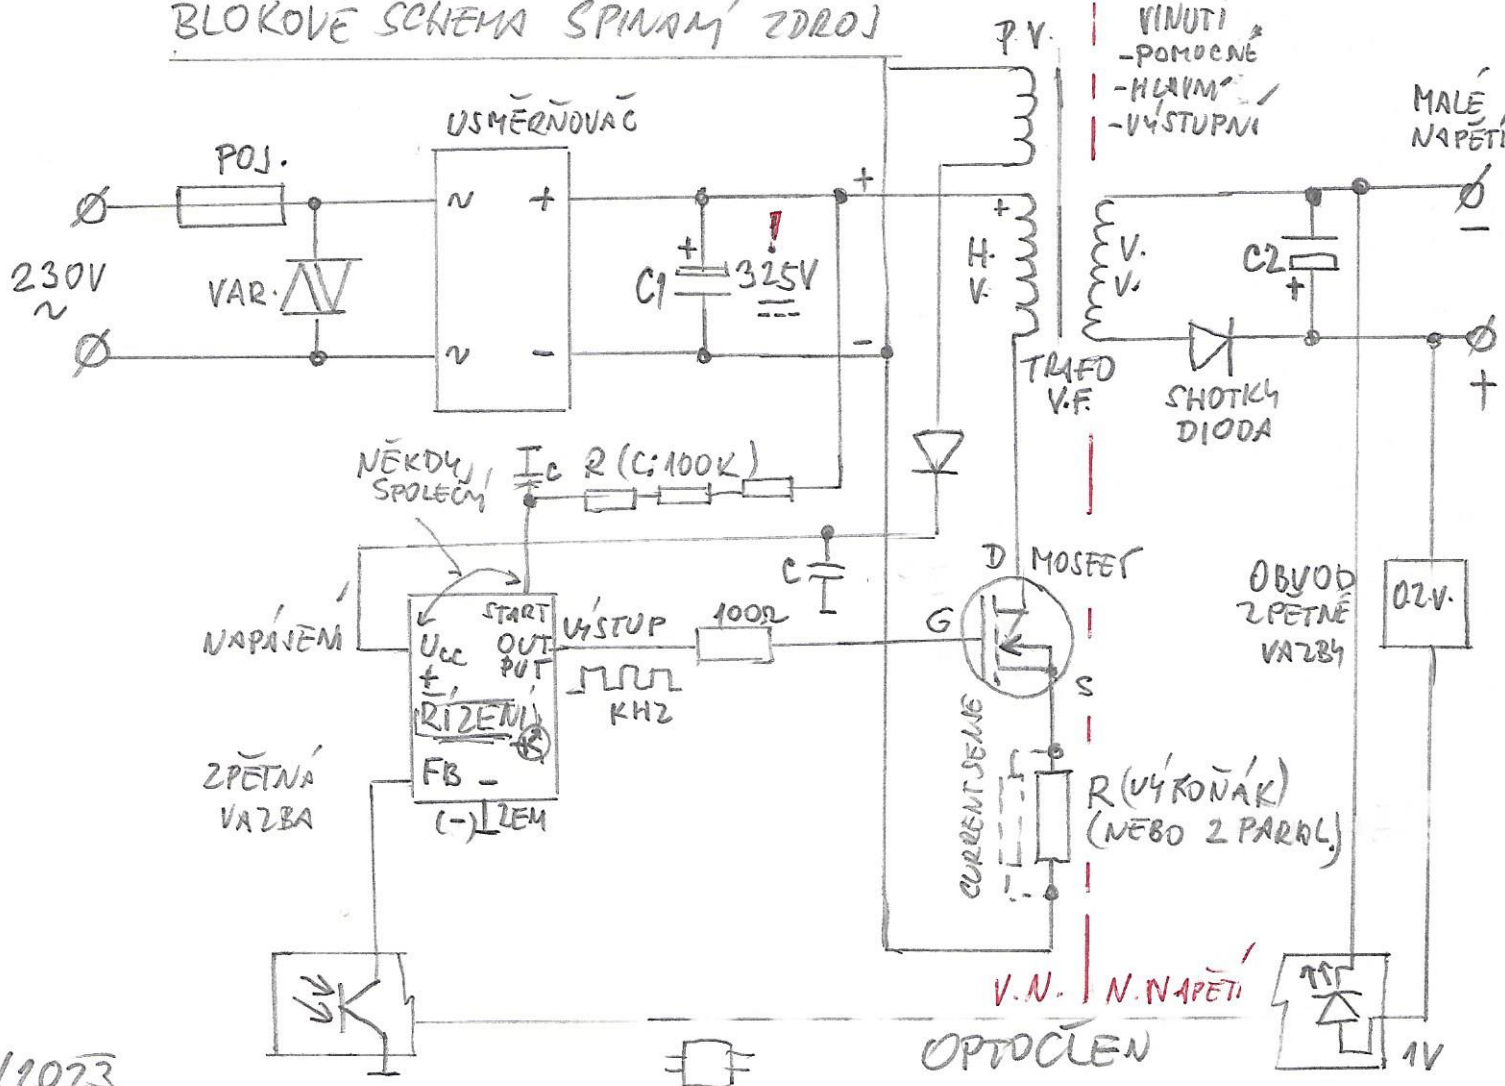 BLOKOVÉ SCHEMA SPÍNANÝ ZDROJ
P.V.
VINUTÍ
-POMOCNÉ
-HLAVNÍ
-VÝSTUPNÍ
MALÉ
NAPĚTÍ
USMĚRŇOVAČ
POJ.
230V
~
VAR.
~ +
~ -
C1
+
325V
!
+
-
+
H.
V.
V.
V.
C2
+
-
+
TRAFO
V.F.
SHOTKY
DIODA
NĚKDY
SPOLEČNÝ
C
R (C:100K)
C
NAPÁJENÍ
START
UCC
+
OUT
PUT
ŘÍZENÍ
FB -
(-) ZEM
VÝSTUP
KHZ
100Ω
D MOSFET
G
S
CURRENT SENSE
R (VÝKOŇÁK)
(NEBO 2 PARAL.)
OBVOD
ZPĚTNÉ
VAZBY
O.Z.V.
ZPĚTNÁ
VAZBA
V.N. N.NAPĚTÍ
OPTOČLEN
1V
/2023